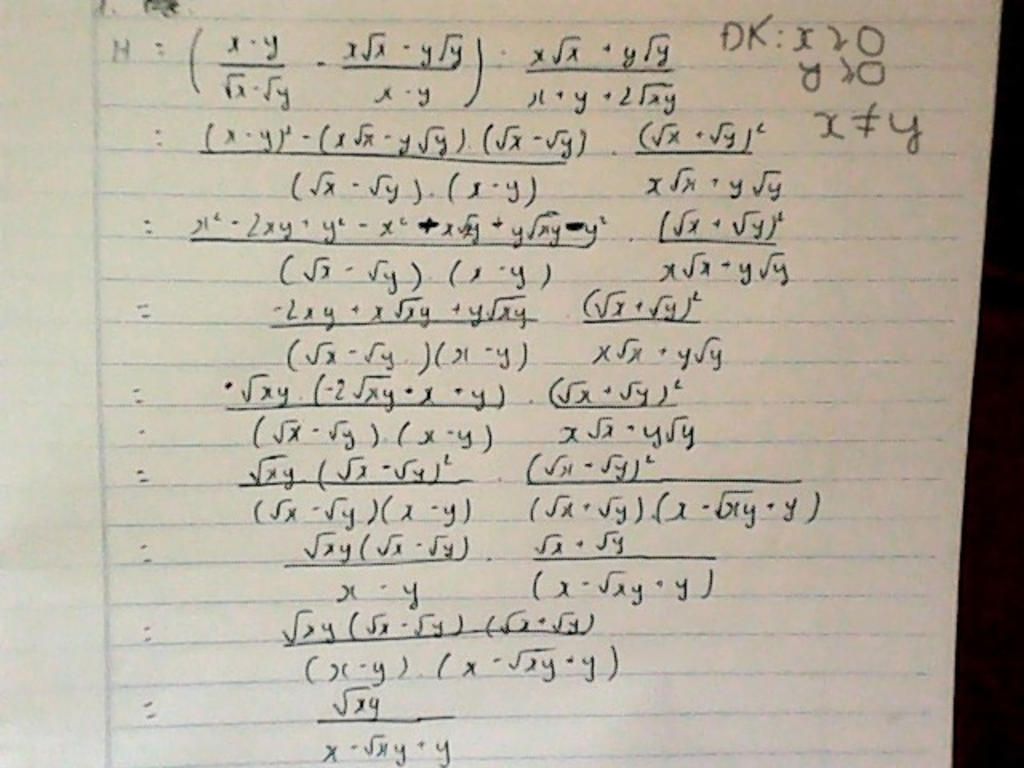 1.
H = ( (x - y)/(√x - √y) - (x√x - y√y)/(x - y) ) : (x√x + y√y)/(x + y + 2√xy) ĐK: x ≥ 0
y ≥ 0
x ≠ y
= ((x - y)² - (x√x - y√y).(√x - √y))/((√x - √y).(x - y)) . (√x + √y)²/(x√x + y√y)
= (x² - 2xy + y² - x² + x√xy + y√xy - y²)/((√x - √y).(x - y)) . (√x + √y)²/(x√x + y√y)
= (-2xy + x√xy + y√xy)/((√x - √y)(x - y)) (√x + √y)²/(x√x + y√y)
= (√xy.(-2√xy + x + y))/((√x - √y).(x - y)) . (√x + √y)²/(x√x + y√y)
= (√xy (√x - √y)²)/((√x - √y)(x - y)) . (√x - √y)²/((√x + √y).(x - √xy + y))
= (√xy(√x - √y))/(x - y) . (√x + √y)/(x - √xy + y)
= (√xy (√x - √y) (√x + √y))/((x - y).(x - √xy + y))
= √xy/(x - √xy + y)